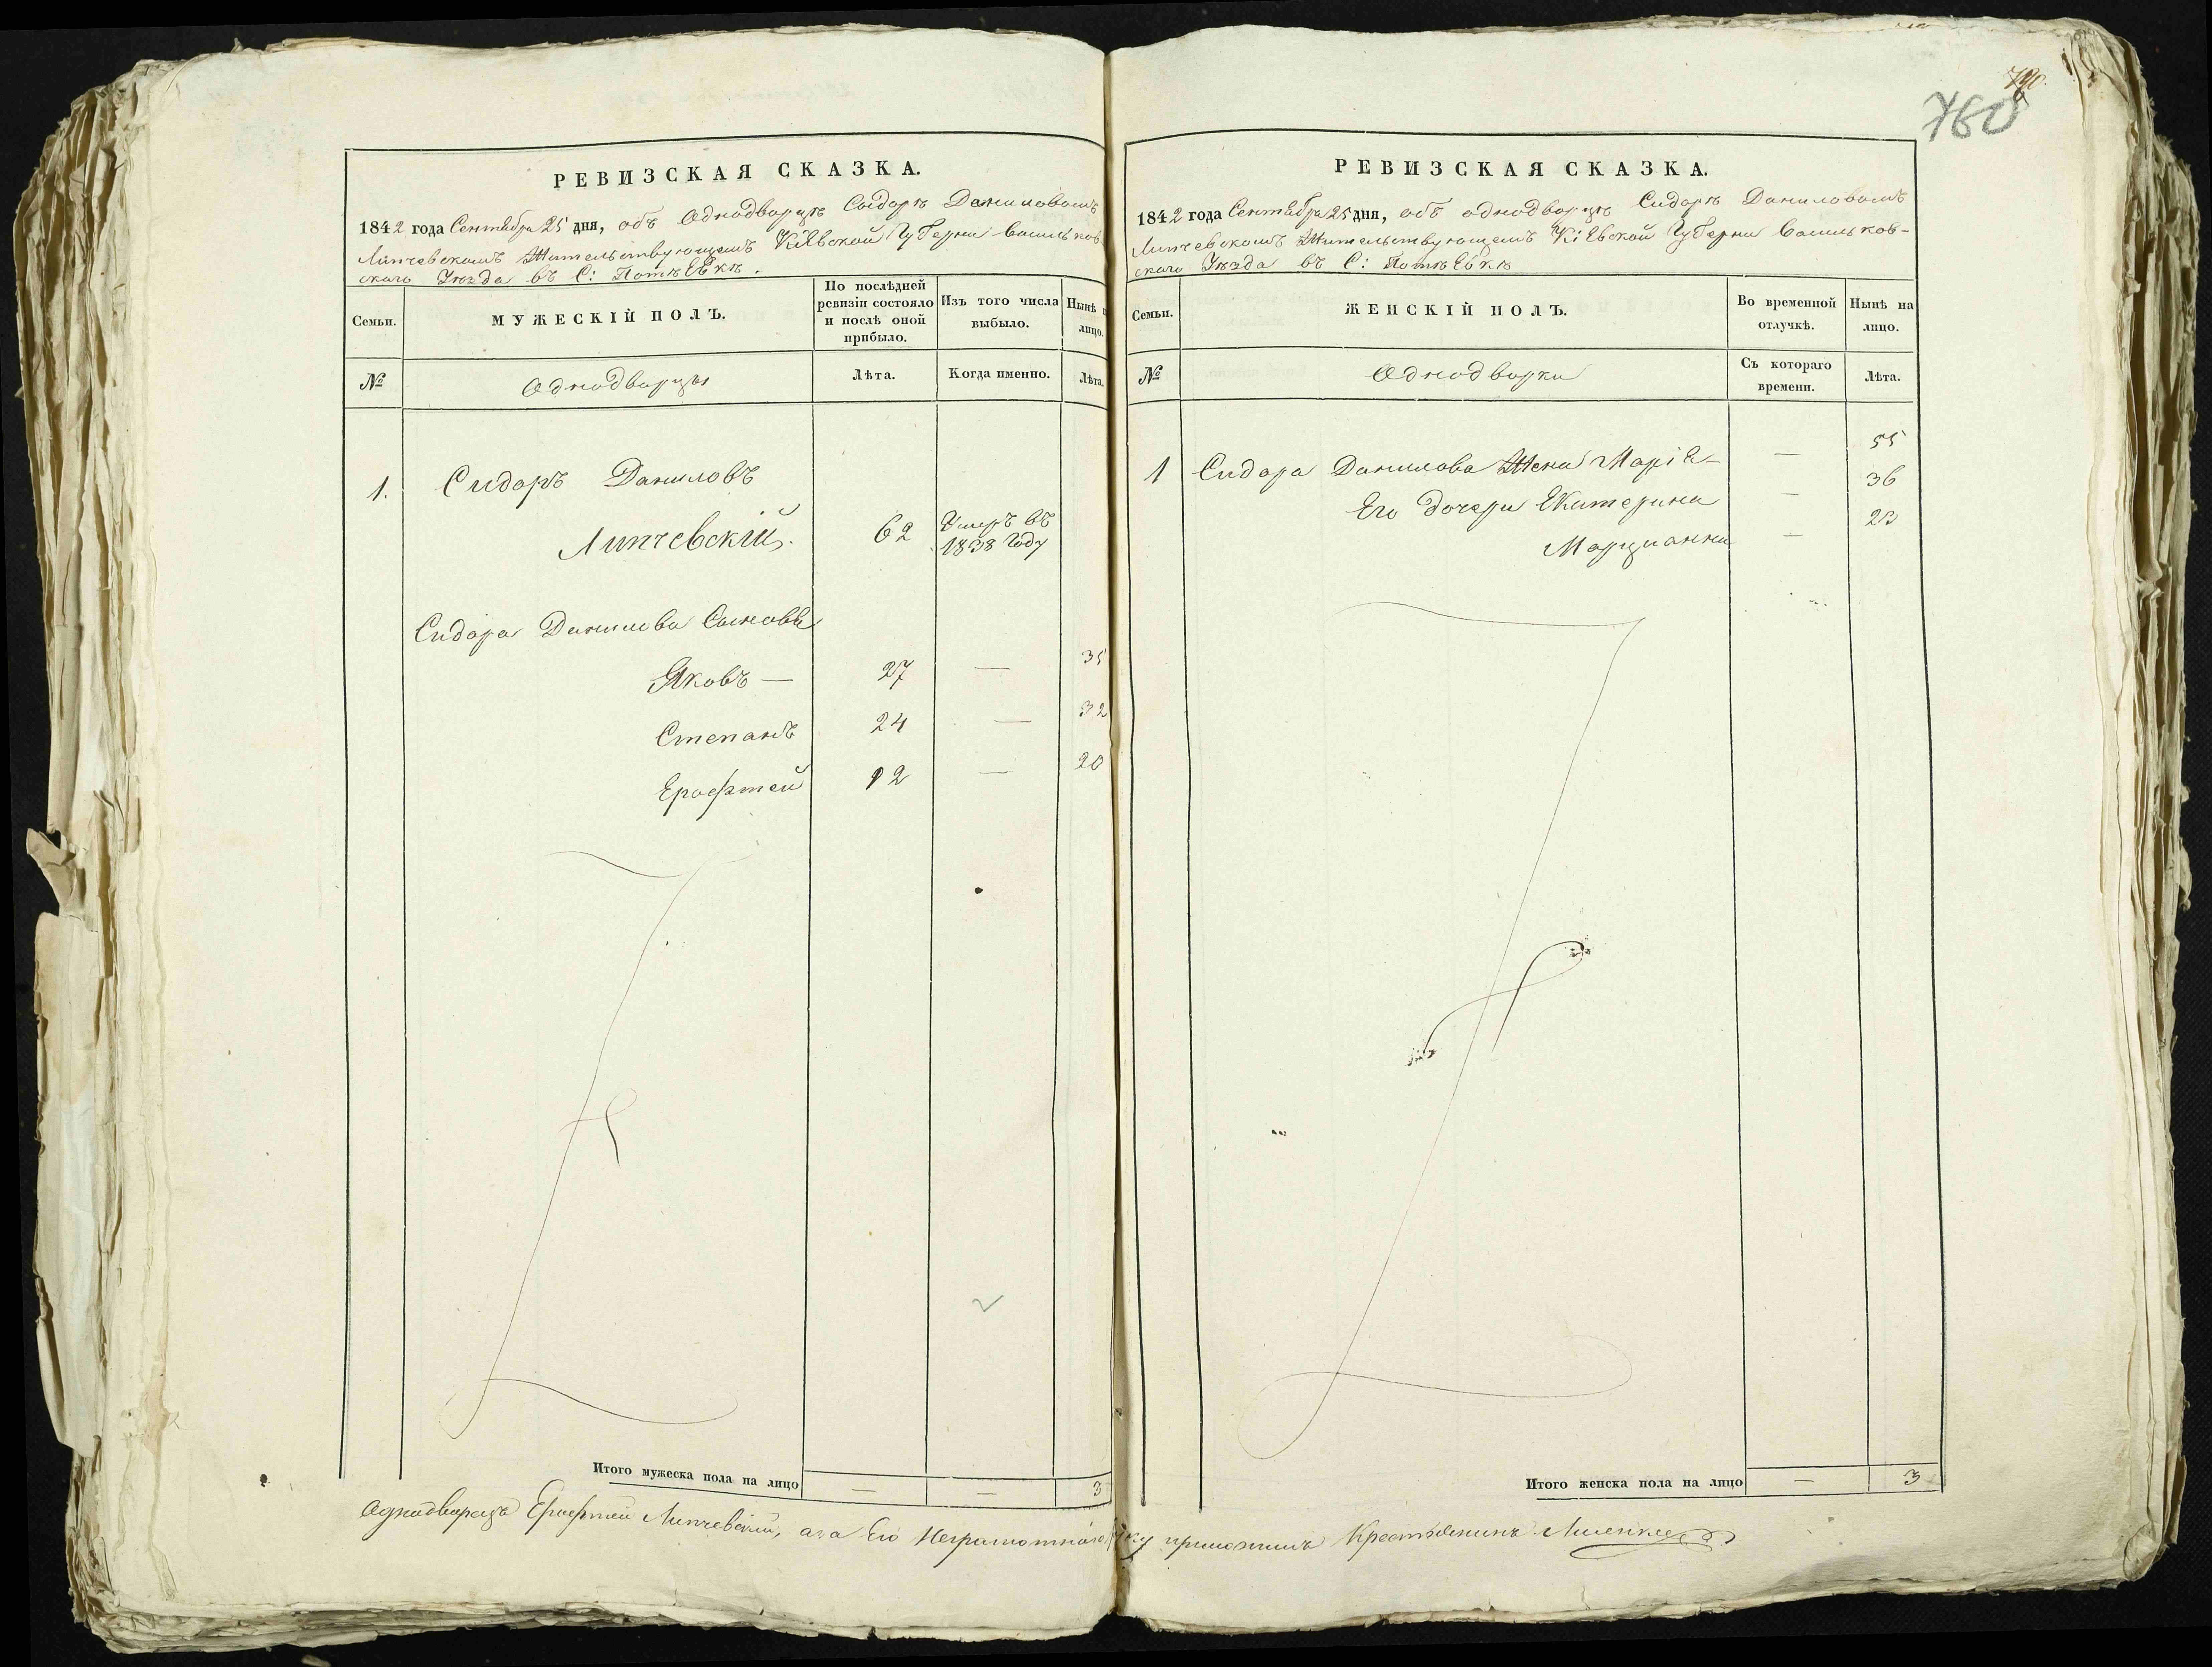 760
РЕВИЗСКАЯ СКАЗКА.
1842 года Сентября 25 дня, объ Однодворцѣ Сидорѣ Даниловомъ
Липчевскомъ Жительствующемъ Кіевской Губерни Васильков-
скаго Уѣзда въ С: Потѣевкѣ.
Семьи.
МУЖЕСКІЙ ПОЛЪ.
По послѣдней ревизіи состояло и послѣ оной прибыло.
Изъ того числа выбыло.
Нынѣ
лицо.
№
Однодворцы
Лѣта.
Когда именно.
Лѣта.
1. Сидоръ Даниловъ
Липчевскій. 62 Умеръ въ
1838 Году
Сидора Данилова Сыновья
Яковъ — 27 — 35
Степанъ 24 — 32
Ерофтей 12 — 20
Итого мужеска пола на лицо — — 3
РЕВИЗСКАЯ СКАЗКА.
1842 года Сентября 25 дня, объ однодворцѣ Сидорѣ Даниловомъ
Липчевскомъ Жительствующемъ Кіевской Губерни Васильков-
скаго Уѣзда въ С: Потѣевкѣ
Семьи.
ЖЕНСКІЙ ПОЛЪ.
Во временной отлучкѣ.
Нынѣ на лицо.
№
Однодворки
Съ котораго времени.
Лѣта.
1 Сидора Данилова Жена Марія — — 55
Его дочери Екатерина — 36
Марцианна — 23
Итого женска пола на лицо — 3
Однодворецъ Ерофтей Липчевскій, а за Его Неграмотнаго руку приложилъ Крестьянинъ